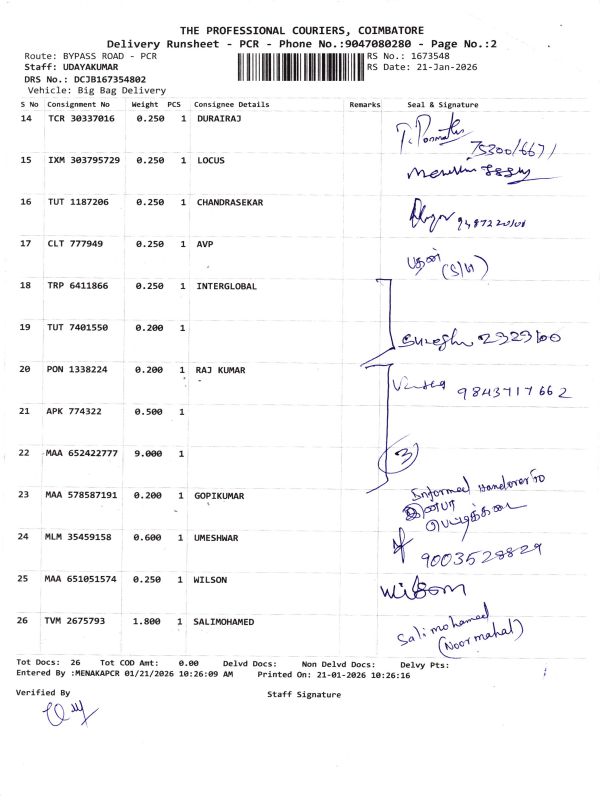 THE PROFESSIONAL COURIERS, COIMBATORE
Delivery Runsheet - PCR - Phone No.:9047080280 - Page No.:2
Route: BYPASS ROAD - PCR
RS No.: 1673548
Staff: UDAYAKUMAR
RS Date: 21-Jan-2026
DRS No.: DCJB167354802
Vehicle: Big Bag Delivery
S No Consignment No Weight PCS Consignee Details Remarks Seal & Signature
14 TCR 30337016 0.250 1 DURAIRAJ
75300/667/
15 IXM 303795729 0.250 1 LOCUS
16 TUT 1187206 0.250 1 CHANDRASEKAR
17 CLT 777949 0.250 1 AVP
(S/H)
18 TRP 6411866 0.250 1 INTERGLOBAL
19 TUT 7401550 0.200 1
Suresh 2329100
20 PON 1338224 0.200 1 RAJ KUMAR
9843717662
21 APK 774322 0.500 1
22 MAA 652422777 9.000 1
3
23 MAA 578587191 0.200 1 GOPIKUMAR
Informed Handover To
24 MLM 35459158 0.600 1 UMESHWAR
9003528829
25 MAA 651051574 0.250 1 WILSON
Wilson
26 TVM 2675793 1.800 1 SALIMOHAMED
Salimohamed
(Noormahal)
Tot Docs: 26 Tot COD Amt: 0.00 Delvd Docs: Non Delvd Docs: Delvy Pts:
Entered By :MENAKAPCR 01/21/2026 10:26:09 AM Printed On: 21-01-2026 10:26:16
Verified By Staff Signature